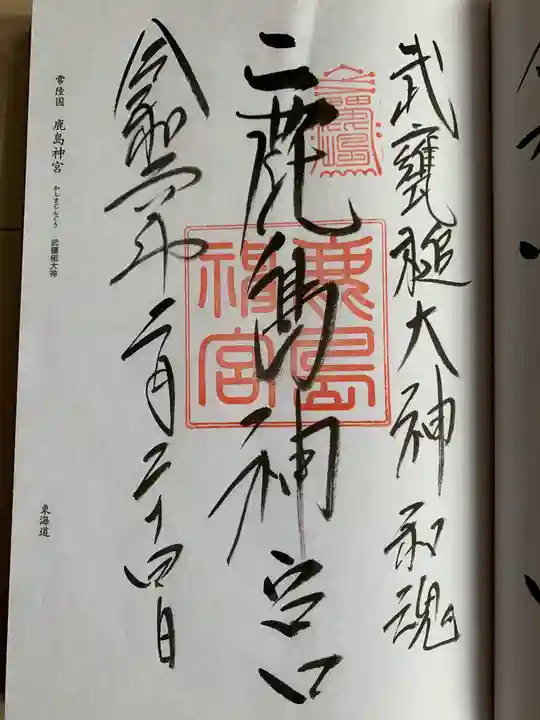 武甕槌大神和魂
鹿島神宮
二鹿島神宮
令和六年二月二十四日
常陸国 鹿島神宮 かしまじんぐう 武甕槌大神
東海道